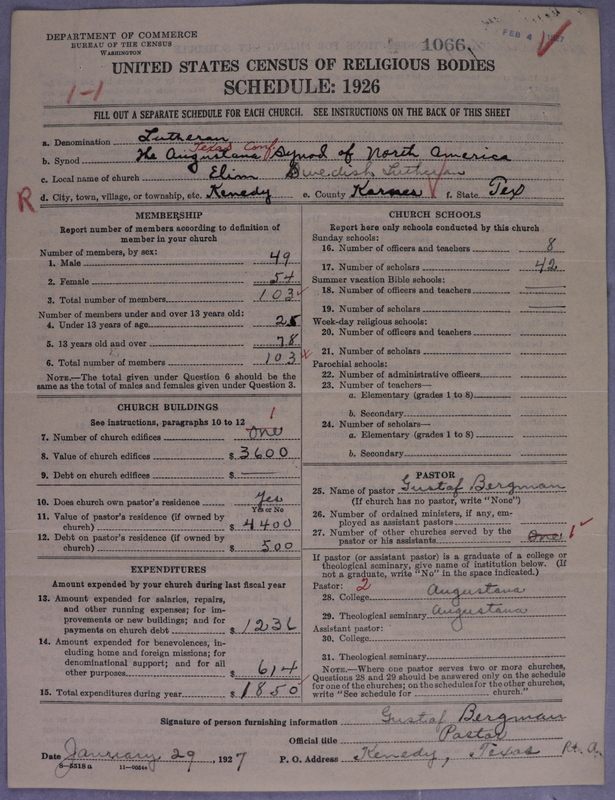 DEPARTMENT OF COMMERCE
BUREAU OF THE CENSUS
WASHINGTON
1066
FEB 4 1927
UNITED STATES CENSUS OF RELIGIOUS BODIES
SCHEDULE: 1926
1-1
FILL OUT A SEPARATE SCHEDULE FOR EACH CHURCH. SEE INSTRUCTIONS ON THE BACK OF THIS SHEET
a. Denomination Lutheran
Texas Conf
b. Synod The Augustana Synod of North America
c. Local name of church Elim Swedish Lutheran
R d. City, town, village, or township, etc. Kenedy e. County Karnes f. State Tex
MEMBERSHIP
Report number of members according to definition of
member in your church
Number of members, by sex:
1. Male 49
2. Female 54
3. Total number of members 103
Number of members under and over 13 years old:
4. Under 13 years of age 25
5. 13 years old and over 78
6. Total number of members 103 x
NOTE.—The total given under Question 6 should be the
same as the total of males and females given under Question 3.
CHURCH BUILDINGS
See instructions, paragraphs 10 to 12
1
7. Number of church edifices One
8. Value of church edifices $ 3600
9. Debt on church edifices $
10. Does church own pastor's residence Yes
Yes or No
11. Value of pastor's residence (if owned by
church) $ 4400
12. Debt on pastor's residence (if owned by
church) $ 500
EXPENDITURES
Amount expended by your church during last fiscal year
13. Amount expended for salaries, repairs,
and other running expenses; for im-
provements or new buildings; and for
payments on church debt $ 1236
14. Amount expended for benevolences, in-
cluding home and foreign missions; for
denominational support; and for all
other purposes $ 614
15. Total expenditures during year $ 1850
CHURCH SCHOOLS
Report here only schools conducted by this church
Sunday schools:
16. Number of officers and teachers 8
17. Number of scholars 42
Summer vacation Bible schools:
18. Number of officers and teachers
19. Number of scholars
Week-day religious schools:
20. Number of officers and teachers
21. Number of scholars
Parochial schools:
22. Number of administrative officers
23. Number of teachers—
a. Elementary (grades 1 to 8)
b. Secondary
24. Number of scholars—
a. Elementary (grades 1 to 8)
b. Secondary
PASTOR
25. Name of pastor Gustaf Bergman
(If church has no pastor, write "None")
26. Number of ordained ministers, if any, em-
ployed as assistant pastors
27. Number of other churches served by the
pastor or his assistants One 1
If pastor (or assistant pastor) is a graduate of a college or
theological seminary, give name of institution below. (If
not a graduate, write "No" in the space indicated.)
Pastor: 2
28. College Augustana
29. Theological seminary Augustana
Assistant pastor:
30. College
31. Theological seminary
NOTE.—Where one pastor serves two or more churches,
Questions 28 and 29 should be answered only on the schedule
for one of the churches; on the schedules for the other churches,
write "See schedule for church."
Signature of person furnishing information Gustaf Bergman
Official title Pastor
Date January 29, 1927 P. O. Address Kenedy, Texas Rt. A.
8-5318a